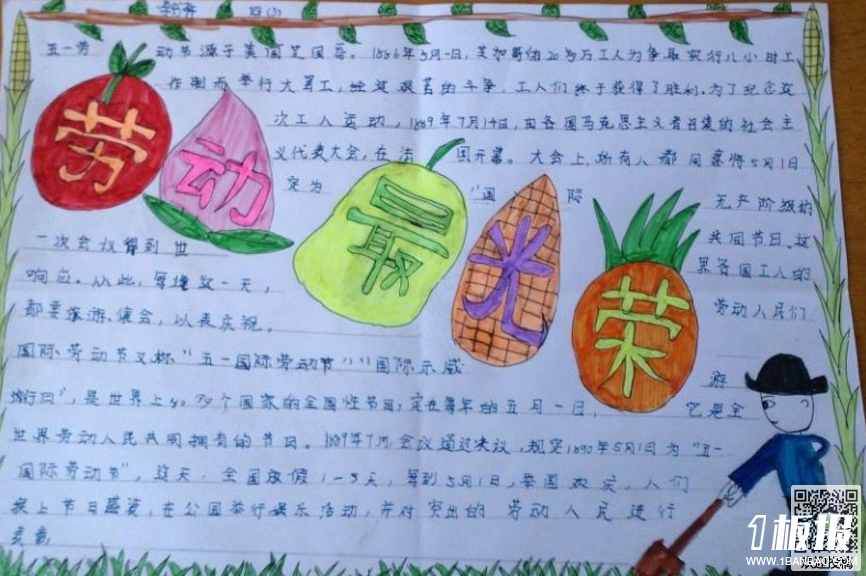 四(3)
劳动最光荣
五一劳动节源于美国芝加哥。1886年5月1日,芝加哥的20多万工人为争取实行八小时工
作制而举行大罢工,经过艰苦的斗争,工人们终于获得了胜利。为了纪念这
次工人运动,1889年7月14日,由各国马克思主义者召集的社会主
义代表大会,在法国开幕。大会上,所有人都同意将5月1日
定为"国际无产阶级的
共同节日。这
一次会议得到世
界各国工人的
响应。从此,每逢这一天,
劳动人民们
都要旅游、集会,以表庆祝。
国际劳动节又称"五一国际劳动节""国际示威游
行日",是世界上80多个国家的全国性节日,定在每年的五月一日,它是全
世界劳动人民共同拥有的节日。1889年7月,会议通过决议,规定1890年5月1日为"五一
国际劳动节"。这天,全国放假1-3天,每到5月1日,举国欢庆,人们
换上节日盛装,在公园举行娱乐活动,并对突出的劳动人民进行
1板报
WWW.1BANBAO.COM